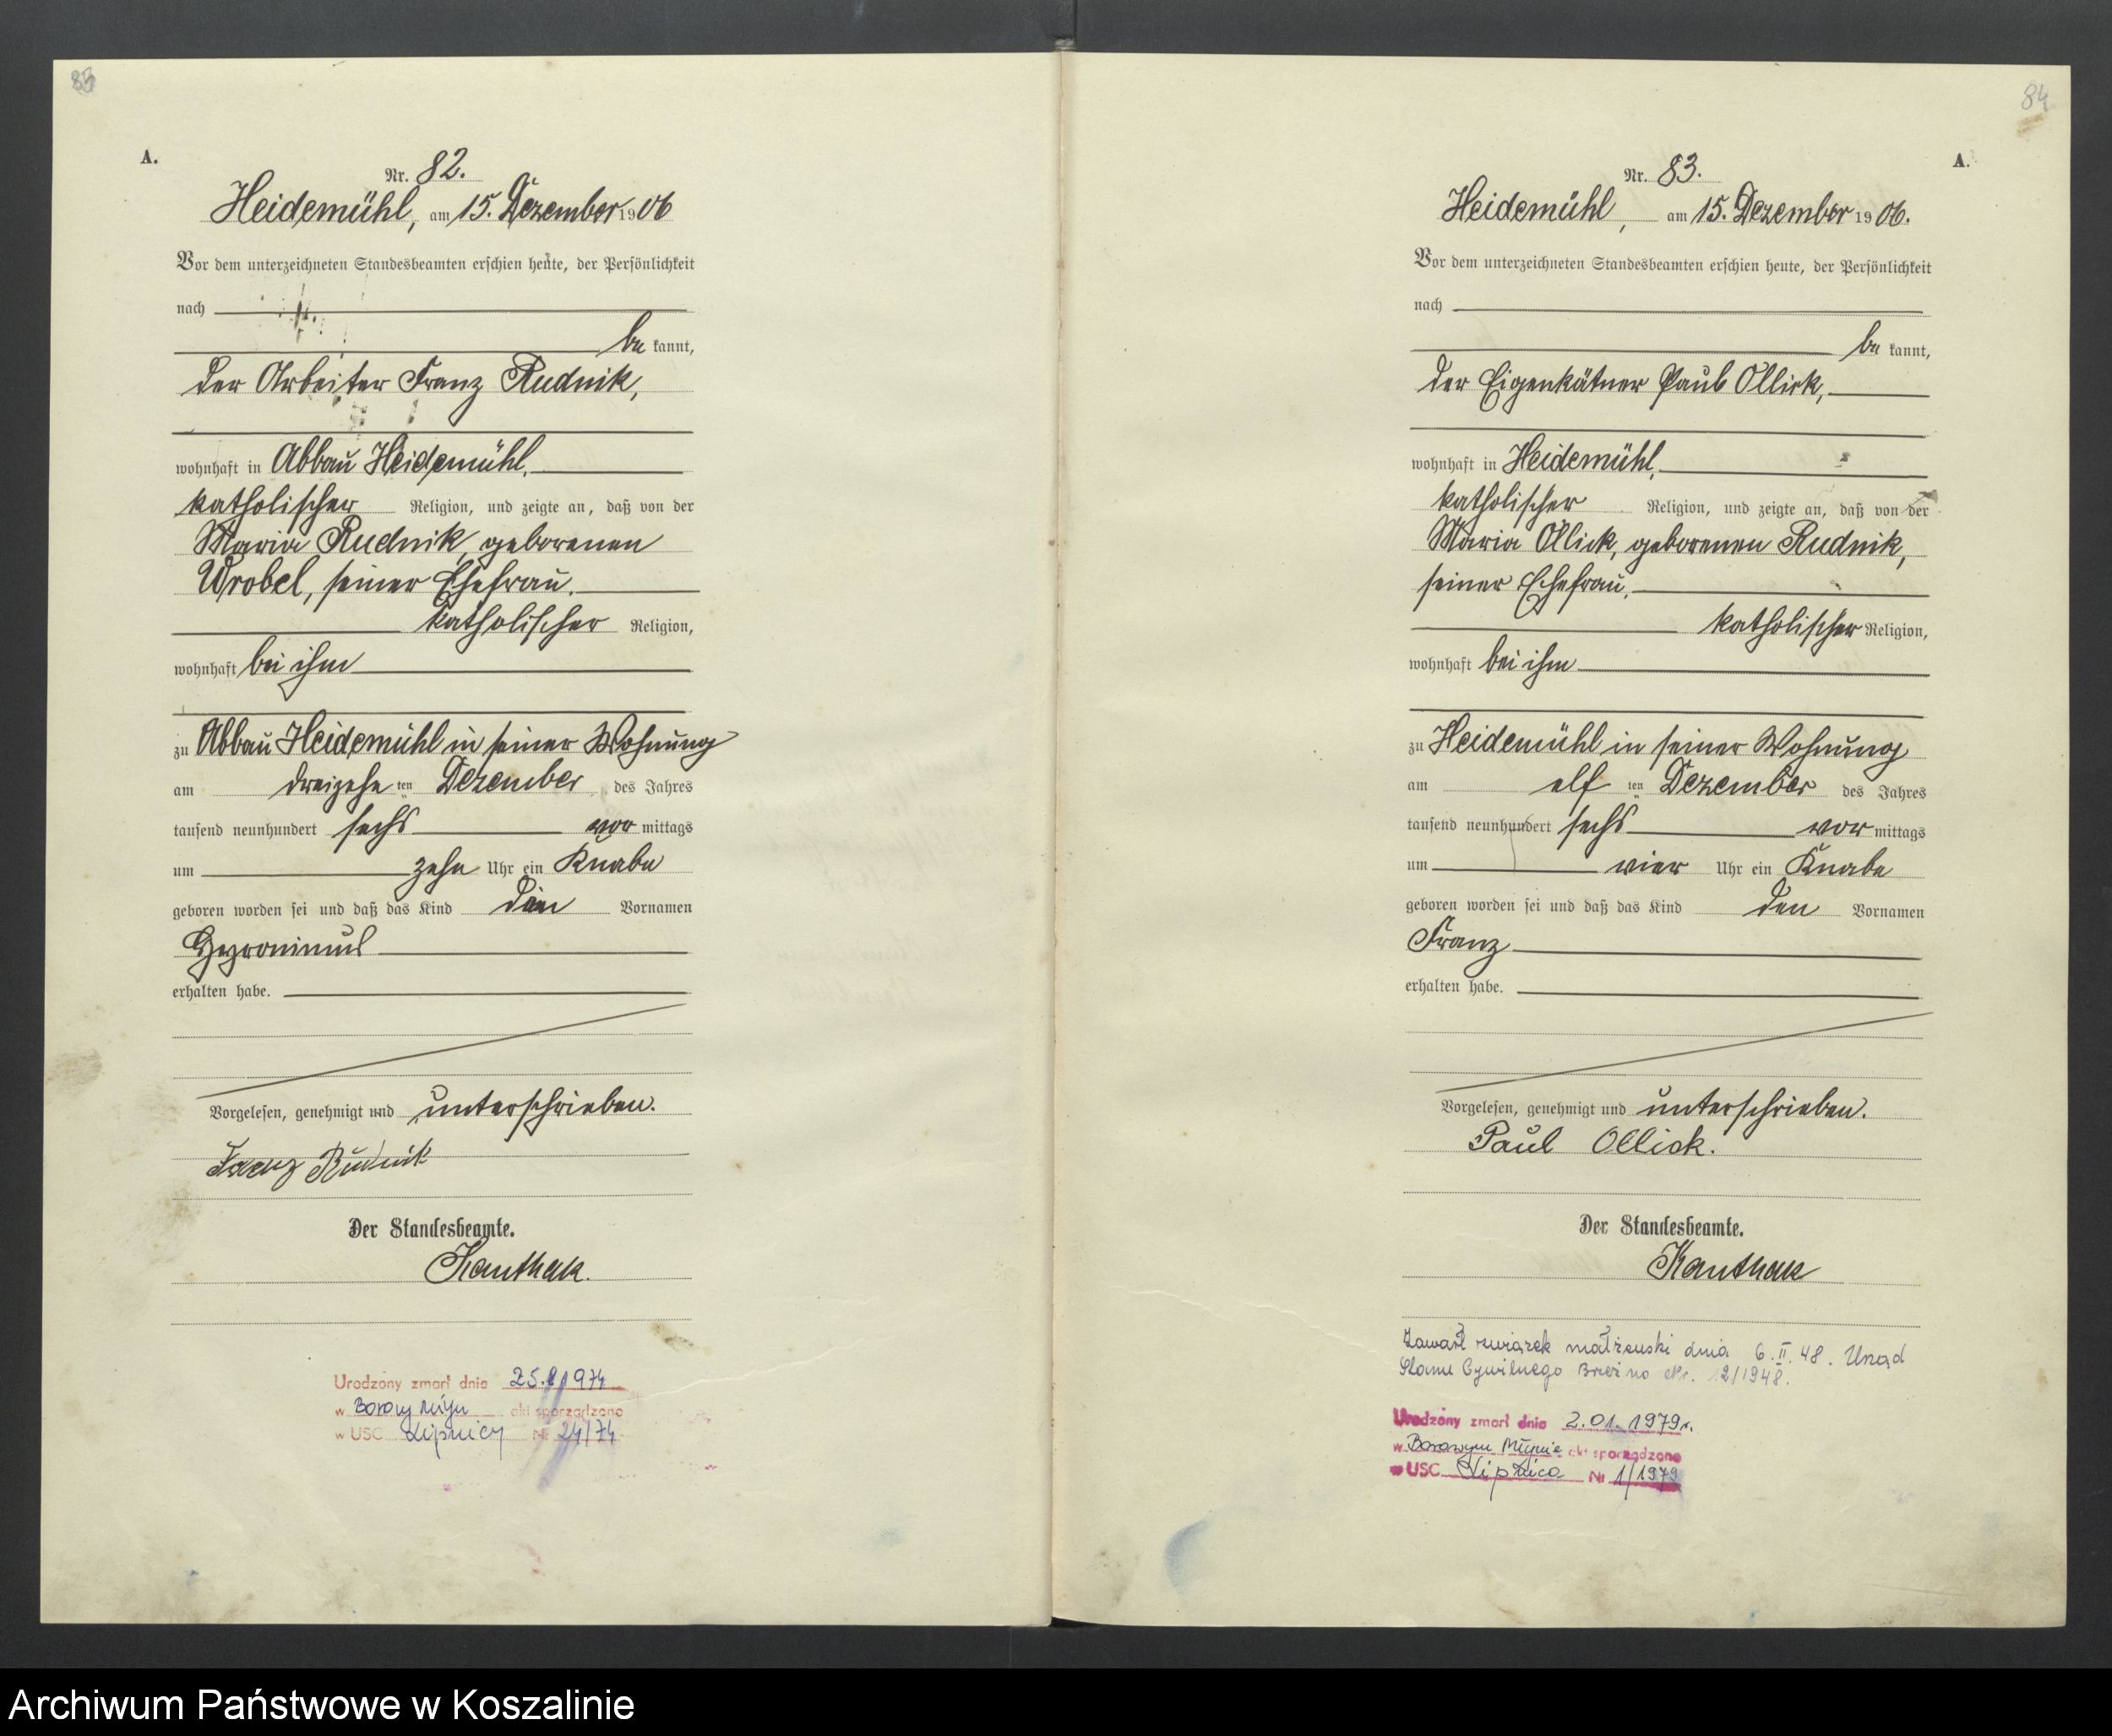 83
A.
Nr. 82.
Heidemühl, am 15. Dezember 1906
Vor dem unterzeichneten Standesbeamten erschien heute, der Persönlichkeit
nach
be kannt,
der Arbeiter Franz Rudnik,
wohnhaft in Abbau Heidemühl,
katholischer Religion, und zeigte an, daß von der
Maria Rudnik, geborenen
Wrobel, seiner Ehefrau,
katholischer Religion,
wohnhaft bei ihm
zu Abbau Heidemühl in seiner Wohnung
am dreizehn ten Dezember des Jahres
tausend neunhundert sechs vor mittags
um zehn Uhr ein Knabe
geboren worden sei und daß das Kind den Vornamen
Hyronimus
erhalten habe.
Vorgelesen, genehmigt und unterschrieben.
Franz Rudnik
Der Standesbeamte.
Kanthak.
Urodzony zmarł dnia 25. 1974
w Borowy Młyn akt sporządzono
w USC Lipnicy Nr 24/74
84
A.
Nr. 83.
Heidemühl, am 15. Dezember 1906.
Vor dem unterzeichneten Standesbeamten erschien heute, der Persönlichkeit
nach
be kannt,
der Eigenkätner Paul Ollick,
wohnhaft in Heidemühl,
katholischer Religion, und zeigte an, daß von der
Maria Ollick, geborenen Rudnik,
seiner Ehefrau,
katholischer Religion,
wohnhaft bei ihm
zu Heidemühl in seiner Wohnung
am elf ten Dezember des Jahres
tausend neunhundert sechs vor mittags
um vier Uhr ein Knabe
geboren worden sei und daß das Kind den Vornamen
Franz
erhalten habe.
Vorgelesen, genehmigt und unterschrieben.
Paul Ollick.
Der Standesbeamte.
Kanthak
Zawarł związek małżeński dnia 6.II.48. Urząd
Stanu Cywilnego Brzeźno Nr. 2/1948.
Urodzony zmarł dnia 2.01.1979r.
w Borowym Młynie akt sporządzono
w USC Lipnica Nr 1/1979
Archiwum Państwowe w Koszalinie